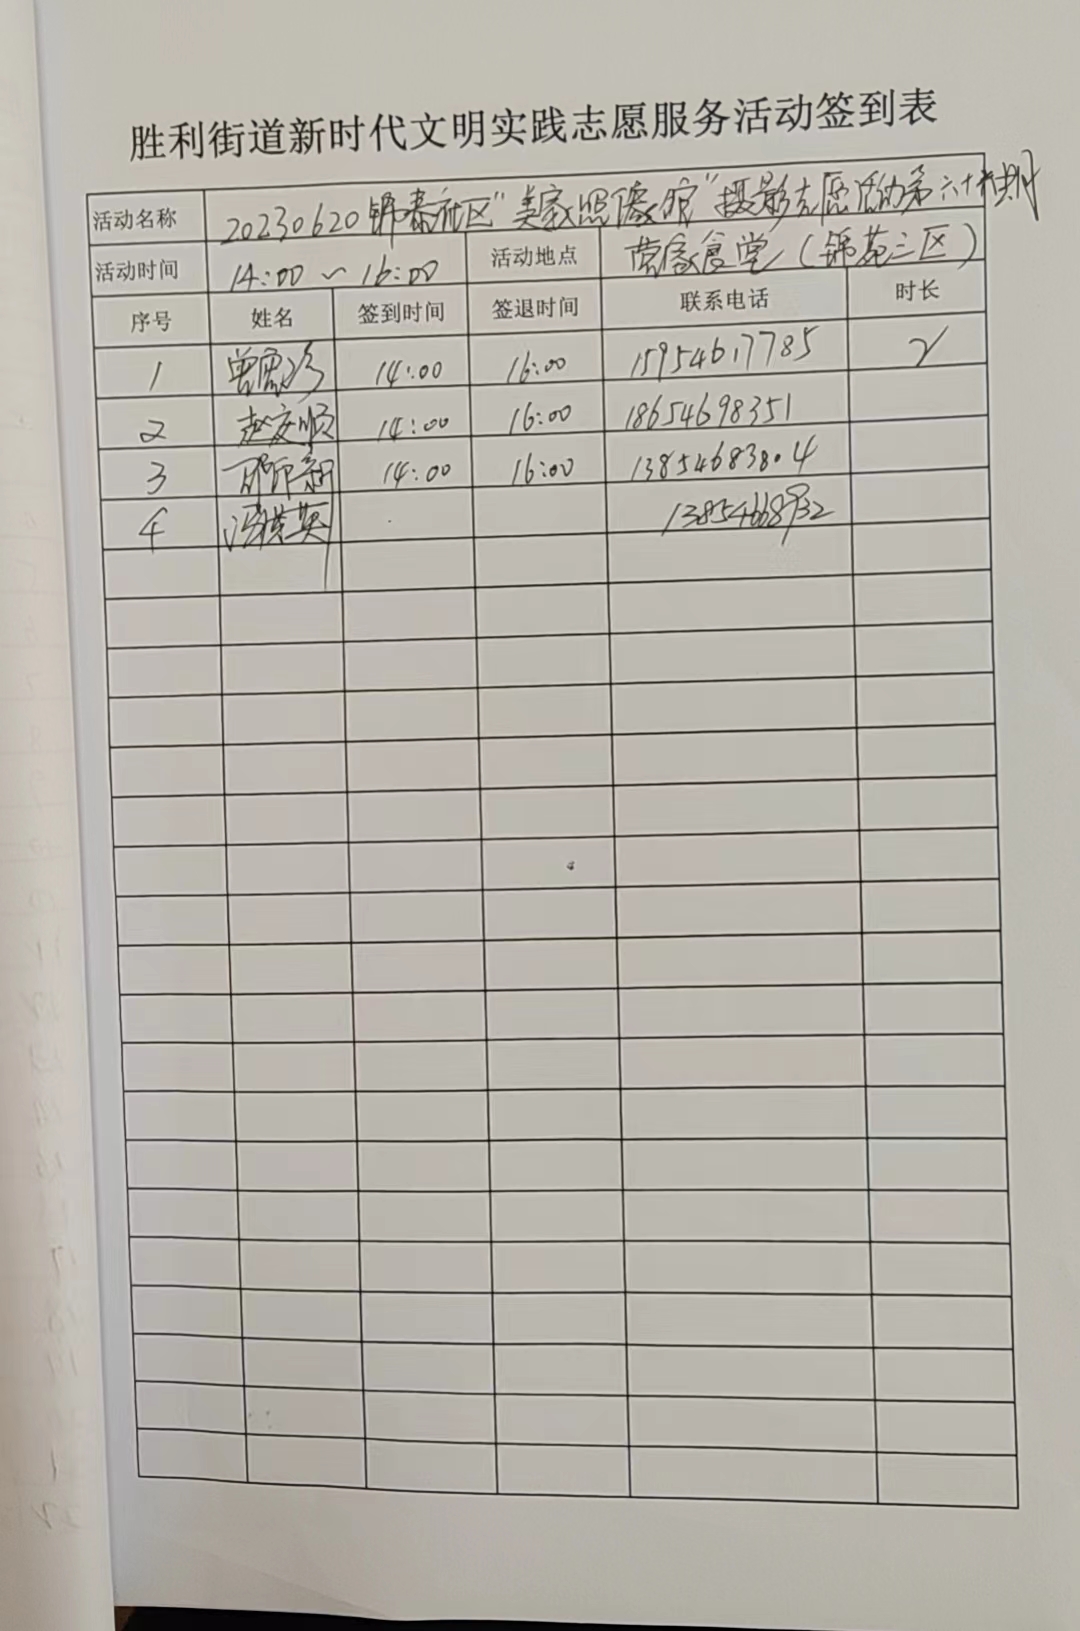 胜利街道新时代文明实践志愿服务活动签到表
活动名称 20230620锦泰社区"美家照像馆"摄影志愿活动第六十
活动时间 14:00～16:00 活动地点 食堂（锦苑三区）
序号 姓名 签到时间 签退时间 联系电话 时长
1 14:00 16:00 15954617785 2
2 赵安顺 14:00 16:00 18654698351
3 14:00 16:00 13854683804
4 冯横英